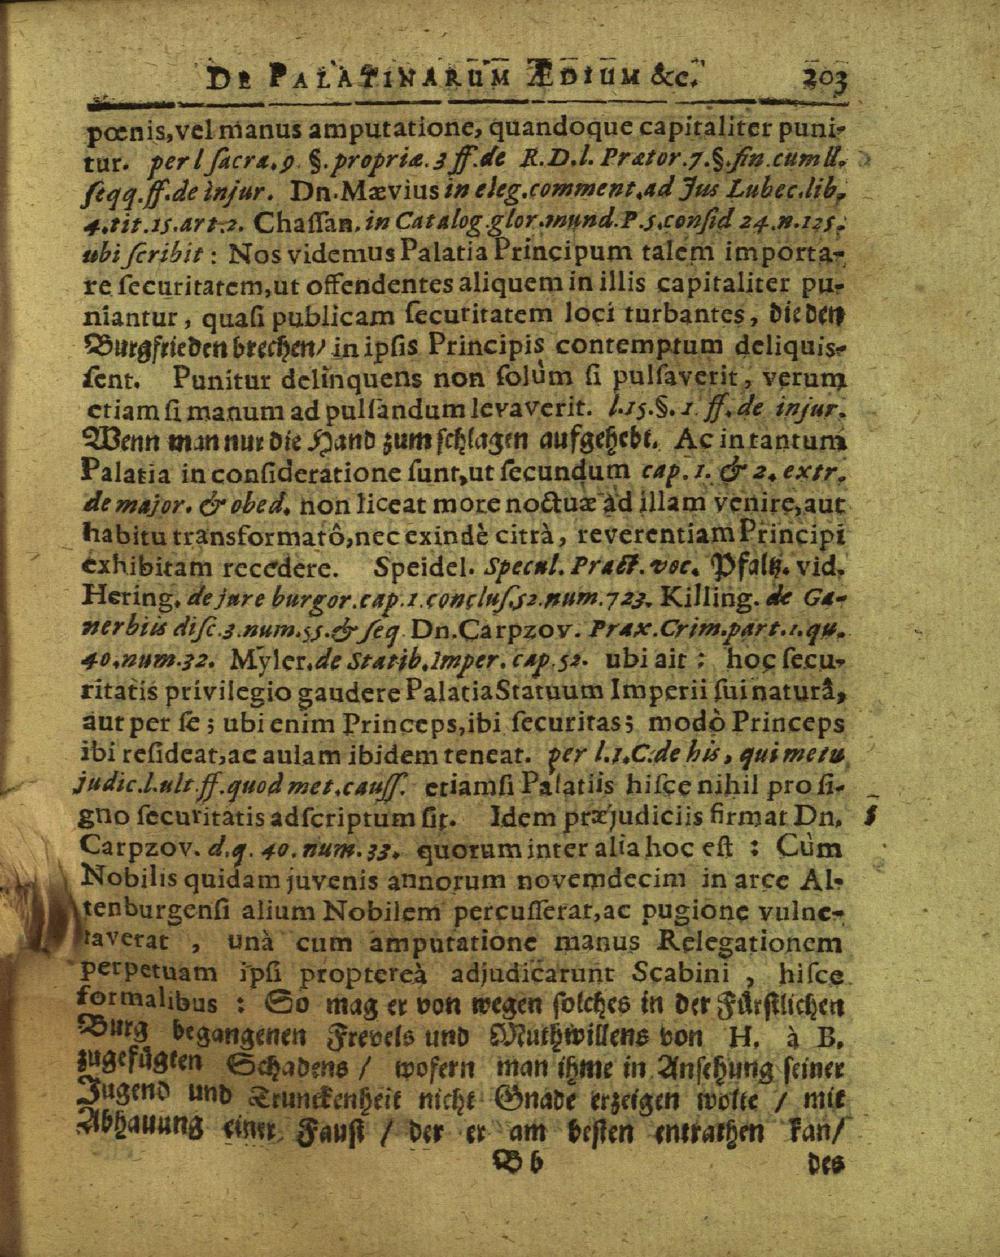 De Palatinarum Ædium &c. 203
pœnis, vel manus amputatione, quandoque capitaliter puni-
tur. per l sacra. 9 §. propriæ. 3 ff. de R. D. l. Prætor. 7. §. fin. cum ll.
seqq. ff. de injur. Dn. Mævius in eleg. comment. ad Jus Lubec. lib.
4. tit. 15. art. 2. Chassan. in Catalog. glor. mund. P. 5. consid 24. n. 125.
ubi scribit : Nos videmus Palatia Principum talem importa-
re securitatem, ut offendentes aliquem in illis capitaliter pu-
niantur, quasi publicam securitatem loci turbantes, die den
Burgfrieden brechen/ in ipsis Principis contemptum deliquis-
sent. Punitur delinquens non solùm si pulsaverit, verum
etiam si manum ad pulsandum levaverit. l. 15. §. 1 ff. de injur.
Wenn man nur die Hand zum schlagen aufgehebt. Ac in tantum
Palatia in consideratione sunt, ut secundum cap. 1. & 2. extr.
de major. & obed. non liceat more noctuæ ad illam venire, aut
habitu transformatô, nec exindè citrà, reverentiam Principi
exhibitam recedere. Speidel. Specul. Pract. voc. Pfaltz. vid.
Hering. de jure burgor. cap. 1. conclus. 52. num. 723. Killing. de Ga-
nerbiis disc. 3. num. 55. & seq Dn. Carpzov. Prax. Crim. part. 1. qu.
40. num. 32. Myler. de Statib. Imper. cap. 52. ubi ait : hoc secu-
ritatis privilegio gaudere Palatia Statuum Imperii sui naturâ,
aut per se ; ubi enim Princeps, ibi securitas ; modò Princeps
ibi resideat, ac aulam ibidem teneat. per l. 1. C. de his, qui metu
judic. l. ult. ff. quod met. causs. etiamsi Palatiis hisce nihil pro si-
gno securitatis adscriptum sit. Idem præjudiciis firmat Dn.
Carpzov. d. q. 40. num. 33. quorum inter alia hoc est : Cùm
Nobilis quidam juvenis annorum novemdecim in arce Al-
tenburgensi alium Nobilem percusserat, ac pugione vulne-
raverat , unà cum amputatione manus Relegationem
perpetuam ipsi proptereà adjudicarunt Scabini , hisce
formalibus : So mag er von wegen solches in der Fürstlichen
Burg begangenen Frevels und Muthwillens von H. à B.
zugefügten Schadens / wofern man ihme in Ansehung seiner
Jugend und Trunckenheit nicht Gnade erzeigen wolte / mit
Abhauung einer Faust / der er am besten entrathen kan/
B b des